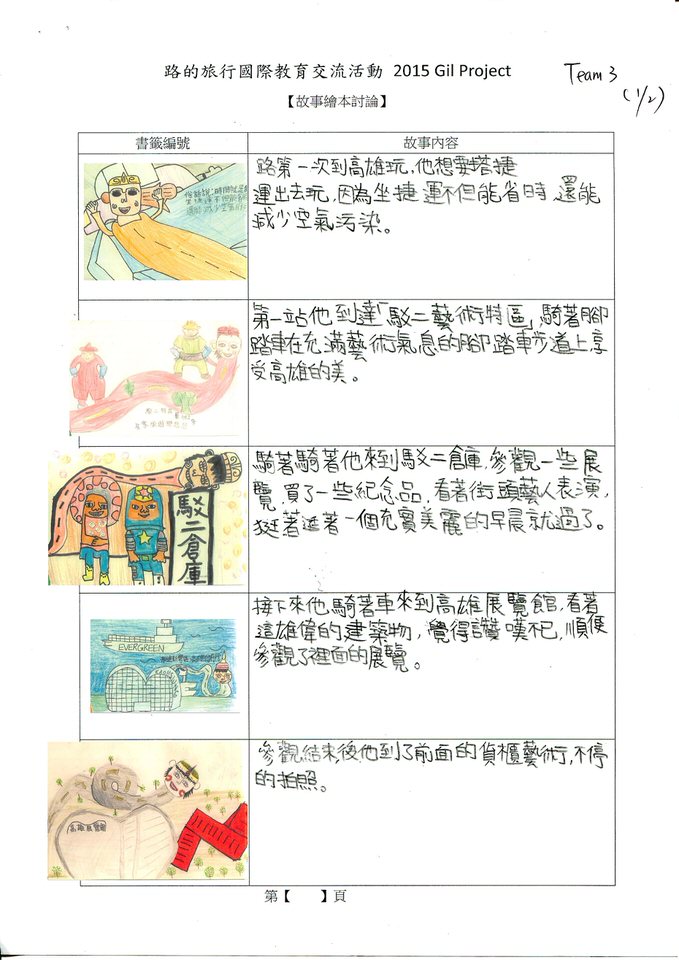 路的旅行國際教育交流活動 2015 Gil Project
Team 3
(1/2)
【故事繪本討論】
書籤編號
故事內容
路第一次到高雄玩,他想要搭捷
運出去玩,因為坐捷運不但能省時 還能
減少空氣污染。
第一站他到達「駁二藝術特區」,騎著腳
踏車在充滿藝術氣息的腳踏車步道上享
受高雄的美。
駁二倉庫
騎著騎著他來到駁二倉庫,參觀一些展
覽,買了一些紀念品,看著街頭藝人表演,
逛著逛著一個充實美麗的早晨就過了。
EVERGREEN
接下來他騎著車來到高雄展覽館,看著
這雄偉的建築物,覺得讚嘆不已,順便
參觀了裡面的展覽。
高雄展覽館
參觀結束後他到了前面的貨櫃藝術,不停
的拍照。
第【 】頁